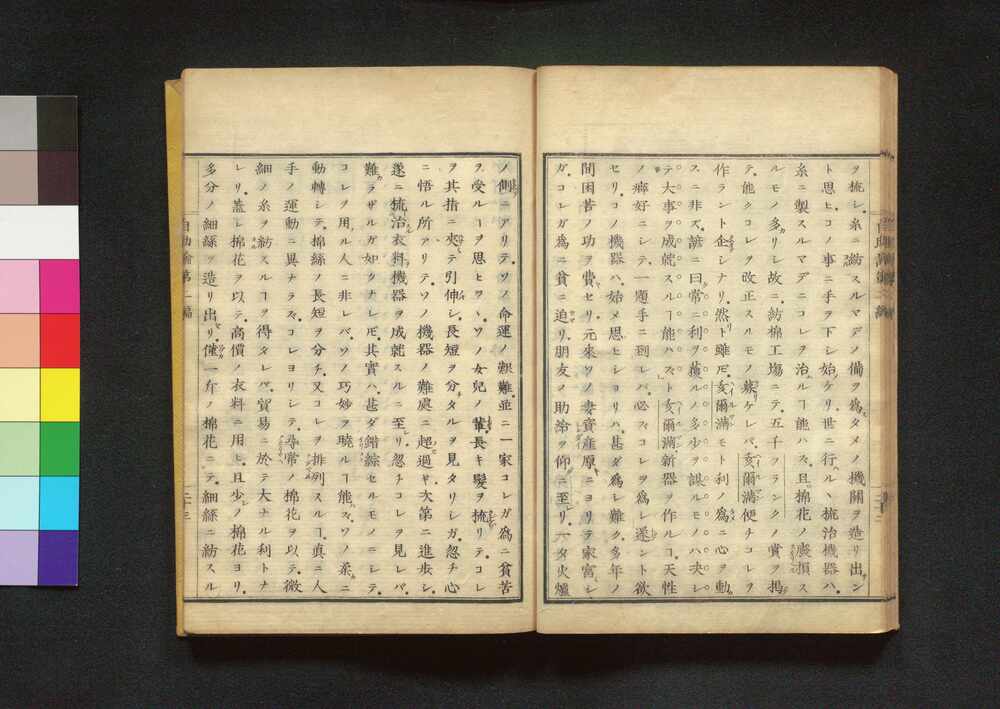 ヲ梳シ糸ニ紡スルマデノ備ヲ為タメノ機關ヲ造リ出ン
ト思ヒコノ事ニ手ヲ下シ始ケリ世ニ行ハルヽ梳治機器ハ
糸ニ製スルマデニコレヲ治ルヿ能ハズ且棉花ノ廢損ス
ルモノ多リシ故ニ紡棉工場ニテ五千フランクノ賞ヲ掲
テ能クコレヲ改正スルモノヲ募ケレバ亥爾滿便チコレヲ
作ラント企シナリ然ト雖𪜈亥爾滿モト利ノ為ニ心ヲ動
スニ非ズ諺ニ曰常ニ利ヲ獲ルノ多少ヲ謀ルモノハ決シ
テ大事ヲ成就スルヿ能ハズト亥爾滿新器ヲ作ルヿ天性
ノ癖好ニシテ一題手ニ到レバ必ズコレヲ為シ遂ント欲
セリコノ機器ハ始メ思ヒシヨリハ甚ダ為シ難ク多年ノ
間困苦ノ功ヲ費セリ元來ソノ妻資産原ニヨリテ家富シ
ガコレガ為ニ貧ニ迫リ朋友ノ助給ヲ仰ニ至リ一夕火爐
ノ側ニアリテソノ命運ノ艱難並ニ一家コレガ為ニ貧苦
ヲ受ルヿヲ思ヒツヽソノ女兒ノ輩長キ髮ヲ梳リテコレ
ヲ其指ニ夾テ引伸シ長短ヲ分タルヲ見タリシガ忽チ心
ニ悟ル所アリテソノ機器ノ難處ニ超過ギ次第ニ進歩シ
遂ニ梳治衣料機器ヲ成就スルニ至リ忽チコレヲ見レバ
難ラザルガ如クナレ𪜈其實ハ甚ダ錯綜セルモノニシテ
コレヲ用ル人ニ非レバソノ巧妙ヲ曉ルヿ能ハズソノ系ニ
動轉シテ棉絲ノ長短ヲ分チ又コレヲ排列スルヿ真ニ人
手ノ運動ニ異ナラズコレヨリシテ尋常ノ棉花ヲ以テ微
細ノ糸ヲ紡スルヿヲ得タレバ貿易ニ於テ大ナル利トナ
レリ蓋シ棉花ヲ以テ高價ノ衣料ニ用ヒ且少ノ棉花ヨリ
多分ノ細絲ヲ造リ出リ僅一斤ノ棉花ニテ細絲ニ紡スル
自助論第一編
二十三